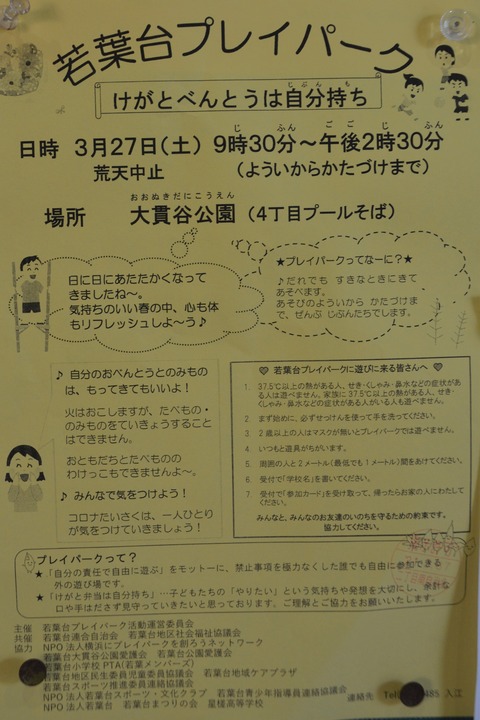 若葉台プレイパーク
けがとべんとうは自分持ち
じぶん も
日時 3月27日(土) 9時30分～午後2時30分
じ ふん ごご じ ふん
荒天中止 (よういからかたづけまで)
おおぬきだにこうえん
場所 大貫谷公園 (4丁目プールそば)
日に日にあたたかくなって
きましたね～。
気持ちのいい春の中、心も体
もリフレッシュしよ～う♪
★プレイパークってなーに?★
♪だれでも すきなときにきて
あそべます。
あそびのようい から かたづけま
で、ぜんぶ じぶんたちでします。
♪ 自分のおべんとうとのみもの
は、もってきてもいいよ!
火はおこしますが、たべもの・
のみものをていきょうすること
はできません。
おともだちとたべものの
わけっこもできませんよ～。
♪ みんなで気をつけよう!
コロナたいさくは、一人ひとり
が気をつけていきましょう!
♡ 若葉台プレイパークに遊びに来る皆さんへ ♡
1. 37.5℃以上の熱がある人、せき・くしゃみ・鼻水などの症状があ
る人は遊べません。家族に37.5℃以上の熱がある人、せき・
くしゃみ・鼻水などの症状がある人がいる人も遊べません。
2. まず始めに、必ずせっけんを使って手を洗ってください。
3. 2歳以上の人はマスクが無いとプレイパークでは遊べません。
4. いつもと遊具がちがいます。
5. 周囲の人と2メートル(最低でも1メートル)間をあけてください。
6. 受付で「学校名」を書いてください。
7. 受付で「参加カード」を受け取って、帰ったらお家の人にわたし
てください。
みんなと、みんなのお友達のいのちを守るための約束です。
協力してください。
プレイパークって?
★・「自分の責任で自由に遊ぶ」をモットーに、禁止事項を極力なくした誰でも自由に参加できる
外の遊び場です。
★・「けがと弁当は自分持ち」…子どもたちの「やりたい」という気持ちや発想を大切にし、余計な
口や手はださず見守っていきたいと思っております。ご理解とご協力をお願いいたします。
主催 若葉台プレイパーク活動運営委員会
共催 若葉台連合自治会 若葉台地区社会福祉協議会
協力 NPO法人横浜にプレイパークを創ろうネットワーク
若葉台大貫谷公園愛護会 若葉台公園愛護会
若葉台小学校PTA(若葉メンバーズ)
若葉台地区民生委員児童委員協議会 若葉台地域ケアプラザ
若葉台スポーツ推進委員連絡協議会
NPO法人若葉台スポーツ・文化クラブ 若葉台青少年指導員連絡協議会
NPO法人若葉台 若葉台まつりの会 星槎高等学校
連絡先 Tel 485 入江